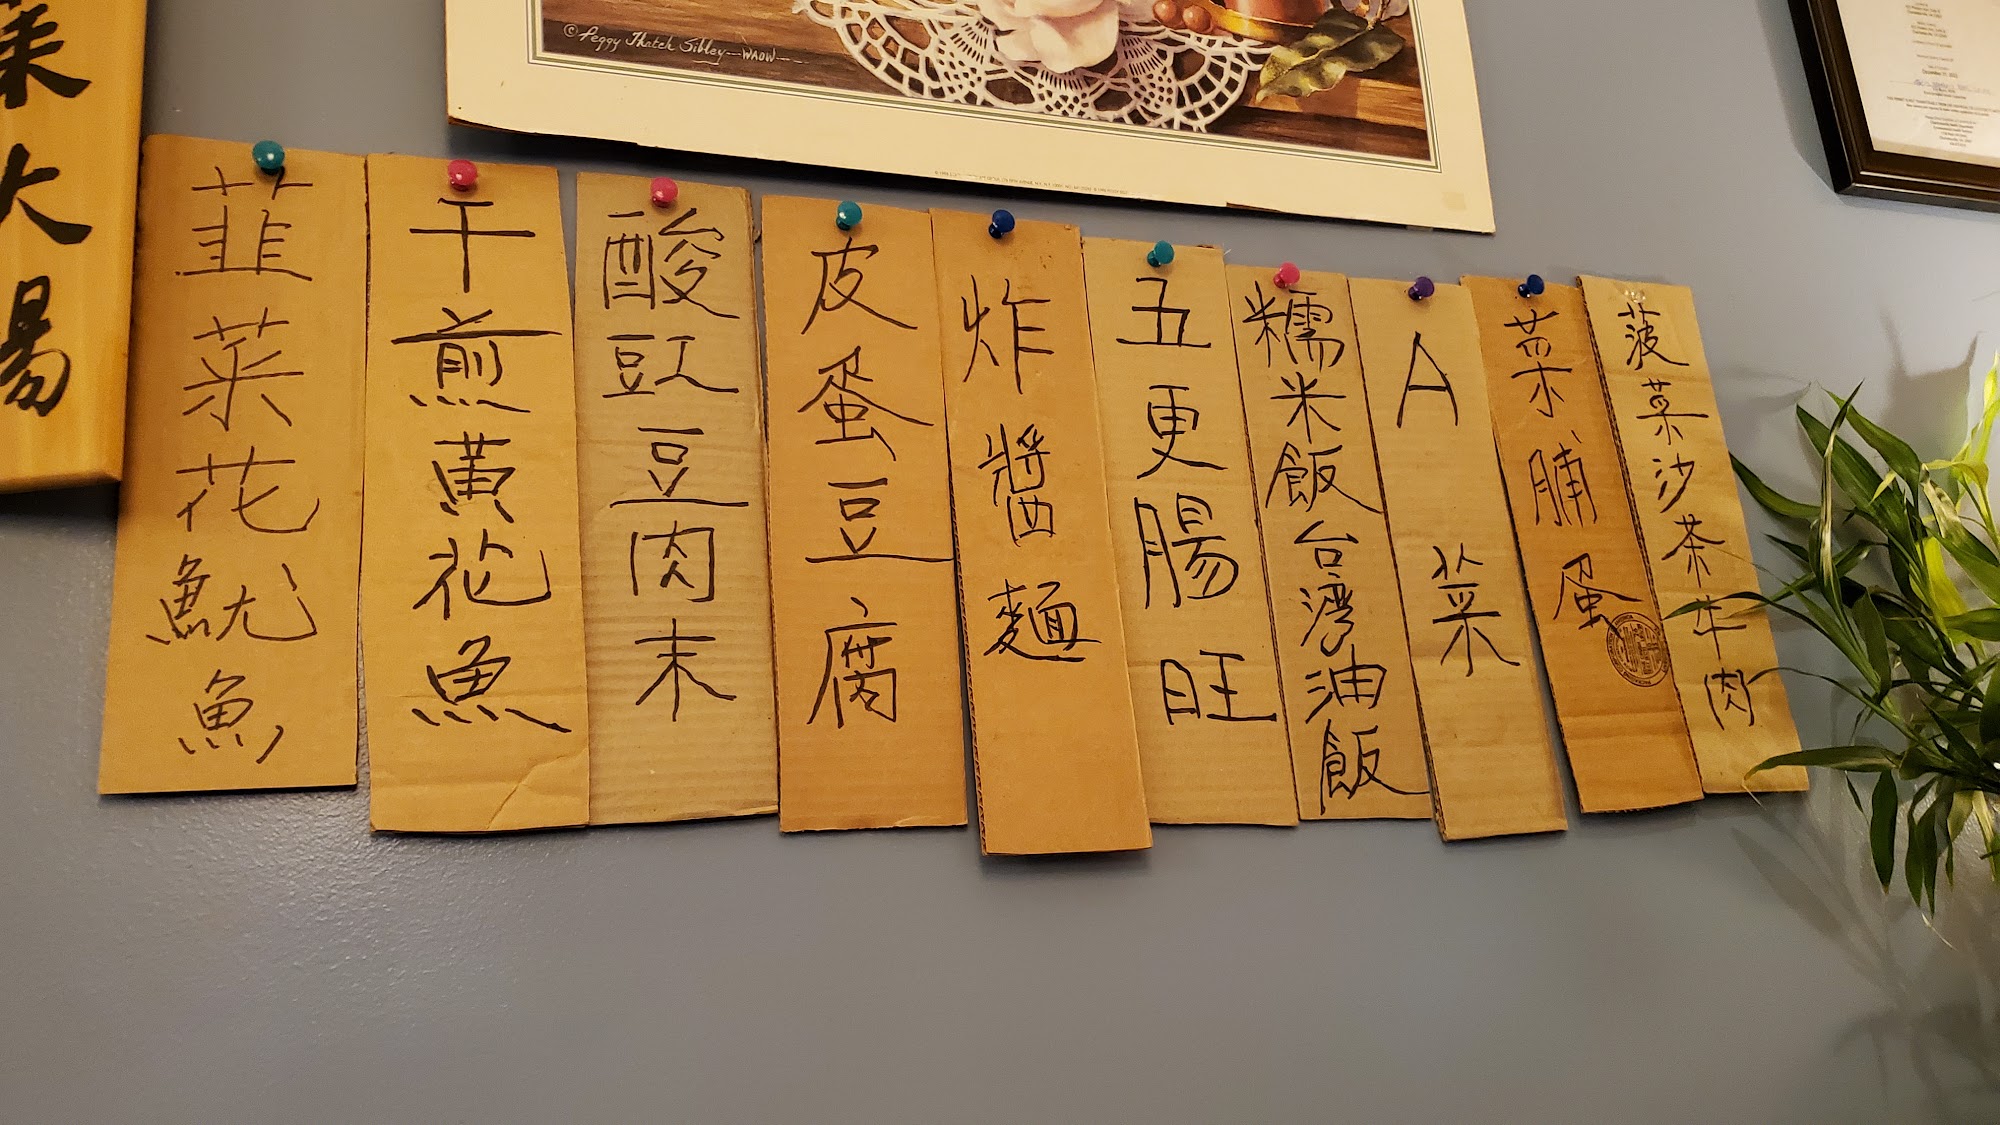 © Peggy Thatch Sibley—WAOW—
大
韮菜花魷魚
干煎黃花魚
酸豇豆肉末
皮蛋豆腐
炸醬麵
五更腸旺
糯米飯台灣油飯
A菜
菜脯蛋
菠菜沙茶牛肉